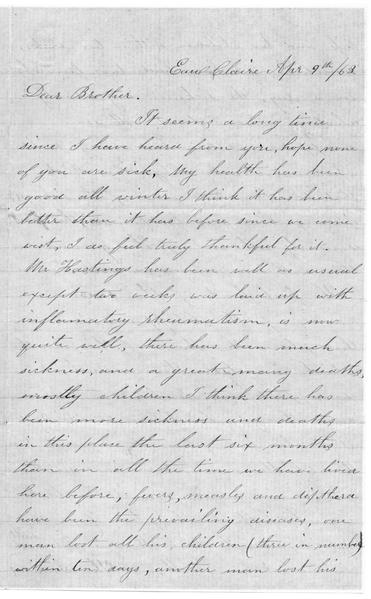 Eau Claire Apr 9th/63
Dear Brother.
It seems a long time
since I have heard from you, hope none
of you are sick, My health has been
good all winter I think it has been
better than it has before since we come
west, I do feel truly thankful for it.
Mr Hastings has been well as usual
except two weeks was laid up with
inflamatory rheumatism, is now
quite well, there has been much
sickness, and a great many deaths,
mostly children I think there has
been more sickness and deaths
in this place the last six months
than in all the time we have lived
here before, fevers, measles and diptheria
have been the prevailing diseases, one
man lost all his children (three in number)
within ten days, another man lost his